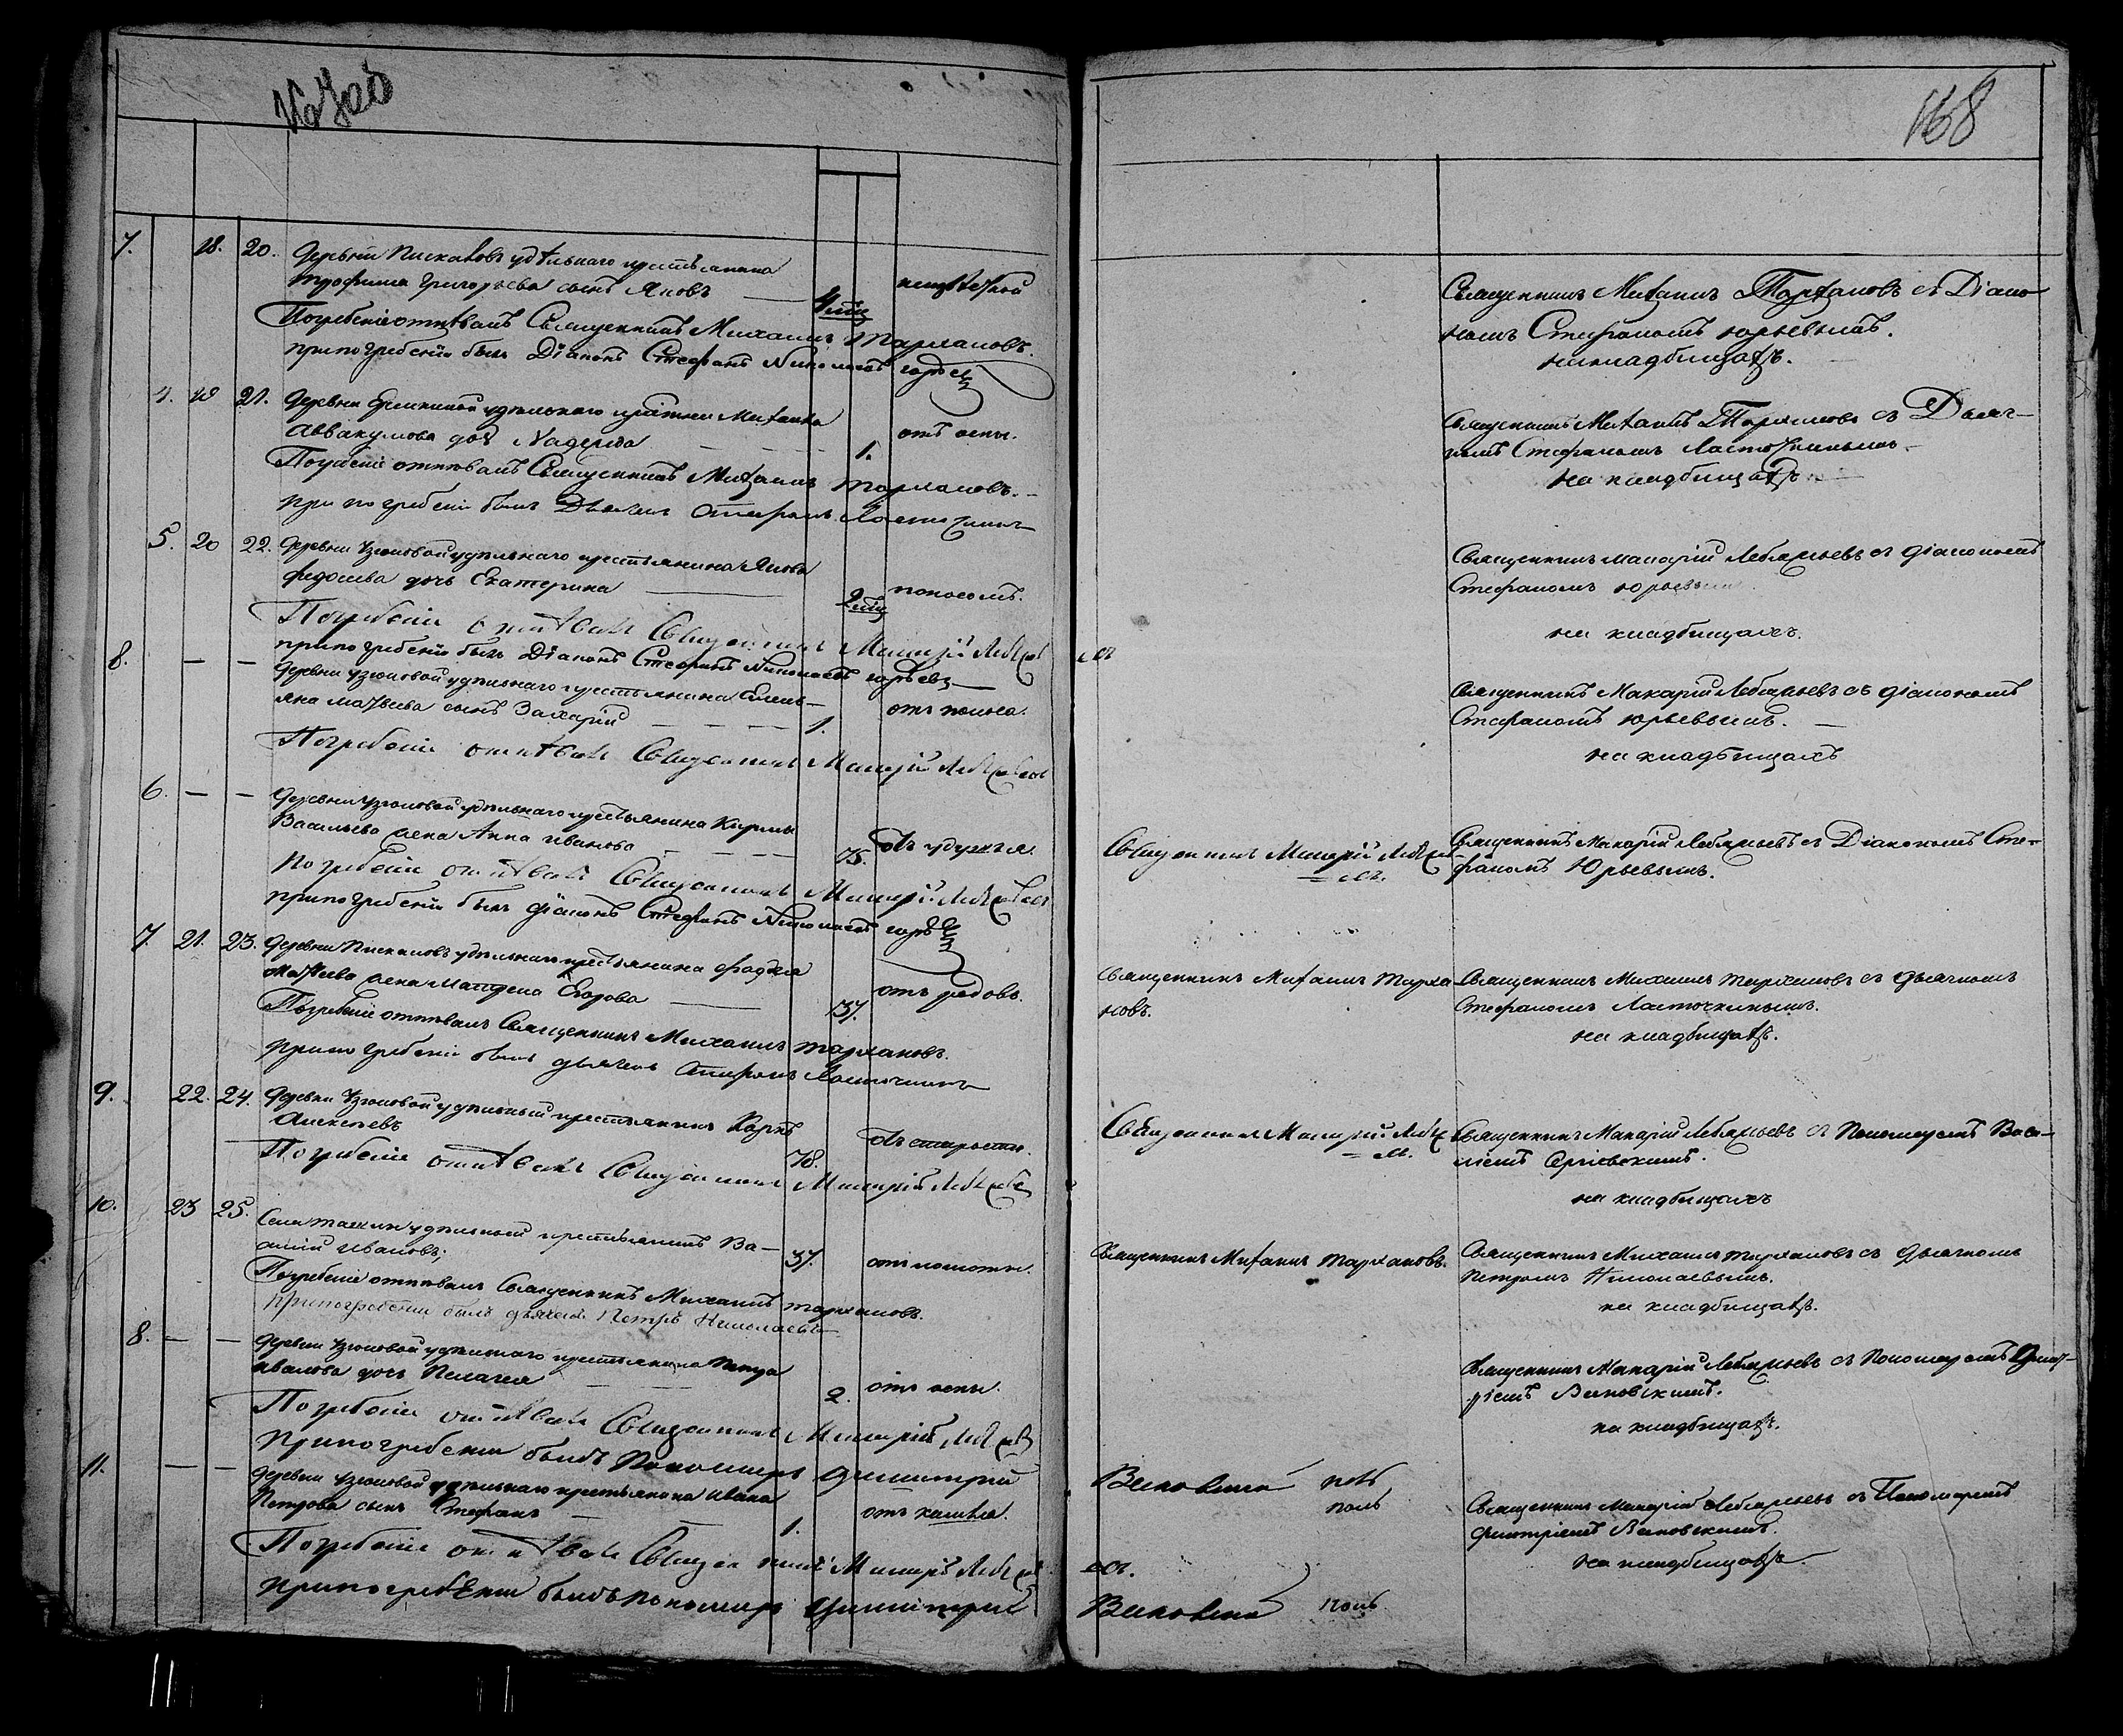 168
7. 18. 20. Деревни Пискаловъ удѣльнаго крестьянина
Трофима Григорьева сынъ Яковъ
Погребеніе отпѣвалъ Священникъ Михаилъ Тархановъ.
при погребеніи былъ Діаконъ Стефанъ Николаевъ Юрьевъ
Священникъ Михаилъ Тархановъ съ Діако-
номъ Стефаномъ Юрьевымъ.
на кладбищахъ.
4. 21. Деревни удѣльнаго Михаила
Аввакумова дочь Надежда 1. отъ оспы.
Погребеніе отпѣвалъ Священникъ Михаилъ Тархановъ.
при погребеніи былъ Дьячокъ Стефанъ Ласточкинъ
Священникъ Михаилъ Тархановъ съ Дьяч-
комъ Стефаномъ Ласточкинымъ.
на кладбищахъ
5. 20 22. Деревни Узюковой удѣльнаго крестьянина Якова
Федосеева дочь Екатерина поносомъ.
Погребеніе отпѣвалъ Священникъ Макарій
при погребеніи былъ Діаконъ Стефанъ Николаевъ Юрьевъ
Священникъ Макарій Лебяжьевъ съ діакономъ
Стефаномъ Юрьевымъ
на кладбищахъ.
8. — — Деревни Узюковой удѣльнаго крестьянина Емель-
яна Матвѣева сынъ Захарій 1. отъ поноса.
Погребеніе отпѣвалъ Священникъ Макарій
Священникъ Макарій Лебяжьевъ съ діакономъ
Стефаномъ Юрьевымъ.
на кладбищахъ
6. — — Деревни Узюковой удѣльнаго крестьянина Кирилы
Васильева жена Анна Иванова 75. отъ удушья.
Погребеніе отпѣвалъ Священникъ Макарій
при погребеніи былъ діаконъ Стефанъ Николаевъ Юрьевъ
Священникъ Макарій
Священникъ Макарій Лебяжьевъ съ Діакономъ Сте-
фаномъ Юрьевымъ.
7. 21. 23. Деревни Пискаловъ удѣльнаго крестьянина Фадѣя
Матвѣева жена Матрена Егорова 37. отъ родовъ.
Погребеніе отпѣвалъ Священникъ Михаилъ Тархановъ.
при погребеніи былъ дьячокъ Стефанъ Ласточкинъ
Священникъ Михаилъ Тарха
новъ.
Священникъ Михаилъ Тархановъ съ дьячкомъ
Стефаномъ Ласточкинымъ.
на кладбищахъ.
9. 22. 24. Деревни Узюковой удѣльный крестьянинъ Карпъ
Алексѣевъ 78. отъ старости.
Погребеніе отпѣвалъ Священникъ Макарій
Священникъ Макарій
Священникъ Макарій Лебяжьевъ съ Пономаремъ Васи-
ліемъ Сергіевскимъ.
на кладбищахъ
10. 23 25. Села удѣльный крестьянинъ Ва-
силій Ивановъ; 37.
Погребеніе отпѣвалъ Священникъ Михаилъ Тархановъ.
при погребеніи былъ дьячекъ Петръ Николаевъ
Священникъ Михаилъ Тархановъ.
Священникъ Михаилъ Тархановъ съ дьячкомъ
Петромъ Николаевымъ.
на кладбищахъ.
8. — — Деревни Узюковой удѣльнаго крестьянина Петра
Иванова дочь Пелагея 2. отъ оспы.
Погребеніе отпѣвалъ Священникъ Макарій
при погребеніи былъ Пономарь Димитрій
Священникъ Макарій Лебяжьевъ съ Пономаремъ Дмит-
ріемъ
на кладбищахъ.
11. — — Деревни Узюковой удѣльнаго крестьянина Ивана
Петрова сынъ Стефанъ 1. отъ кашля.
Погребеніе отпѣвалъ Священникъ Макарій
при погребеніи былъ пономарь Димитрій
Священникъ Макарій Лебяжьевъ съ Пономаремъ
Дмитріемъ
на кладбищахъ.